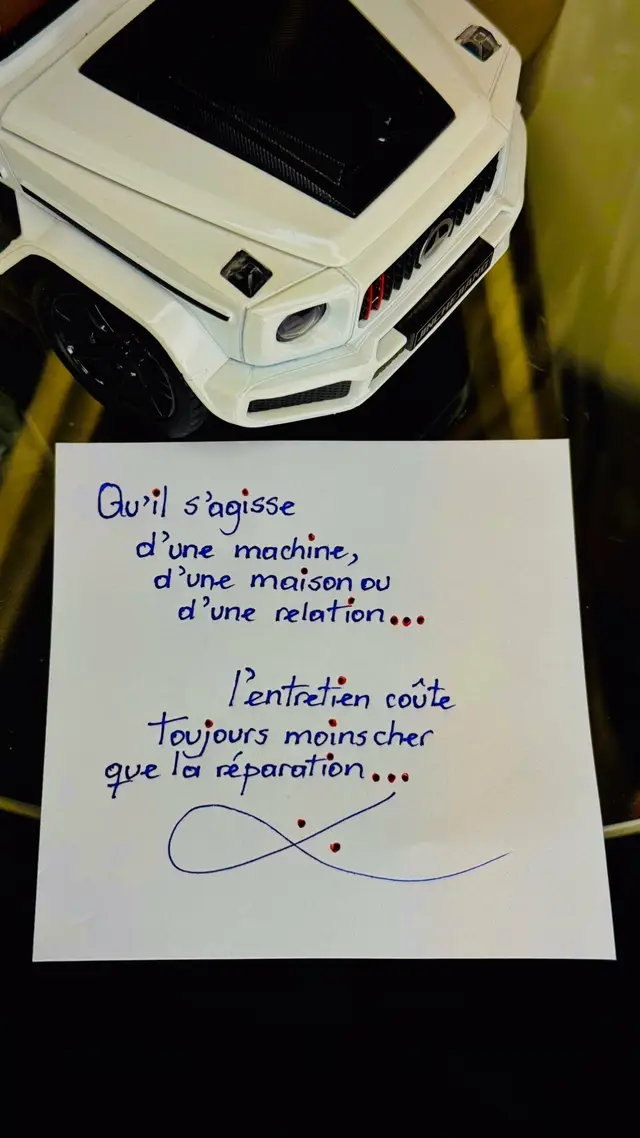 Qu'il s'agisse
d'une machine,
d'une maison ou
d'une relation...
l'entretien coûte
toujours moins cher
que la réparation...